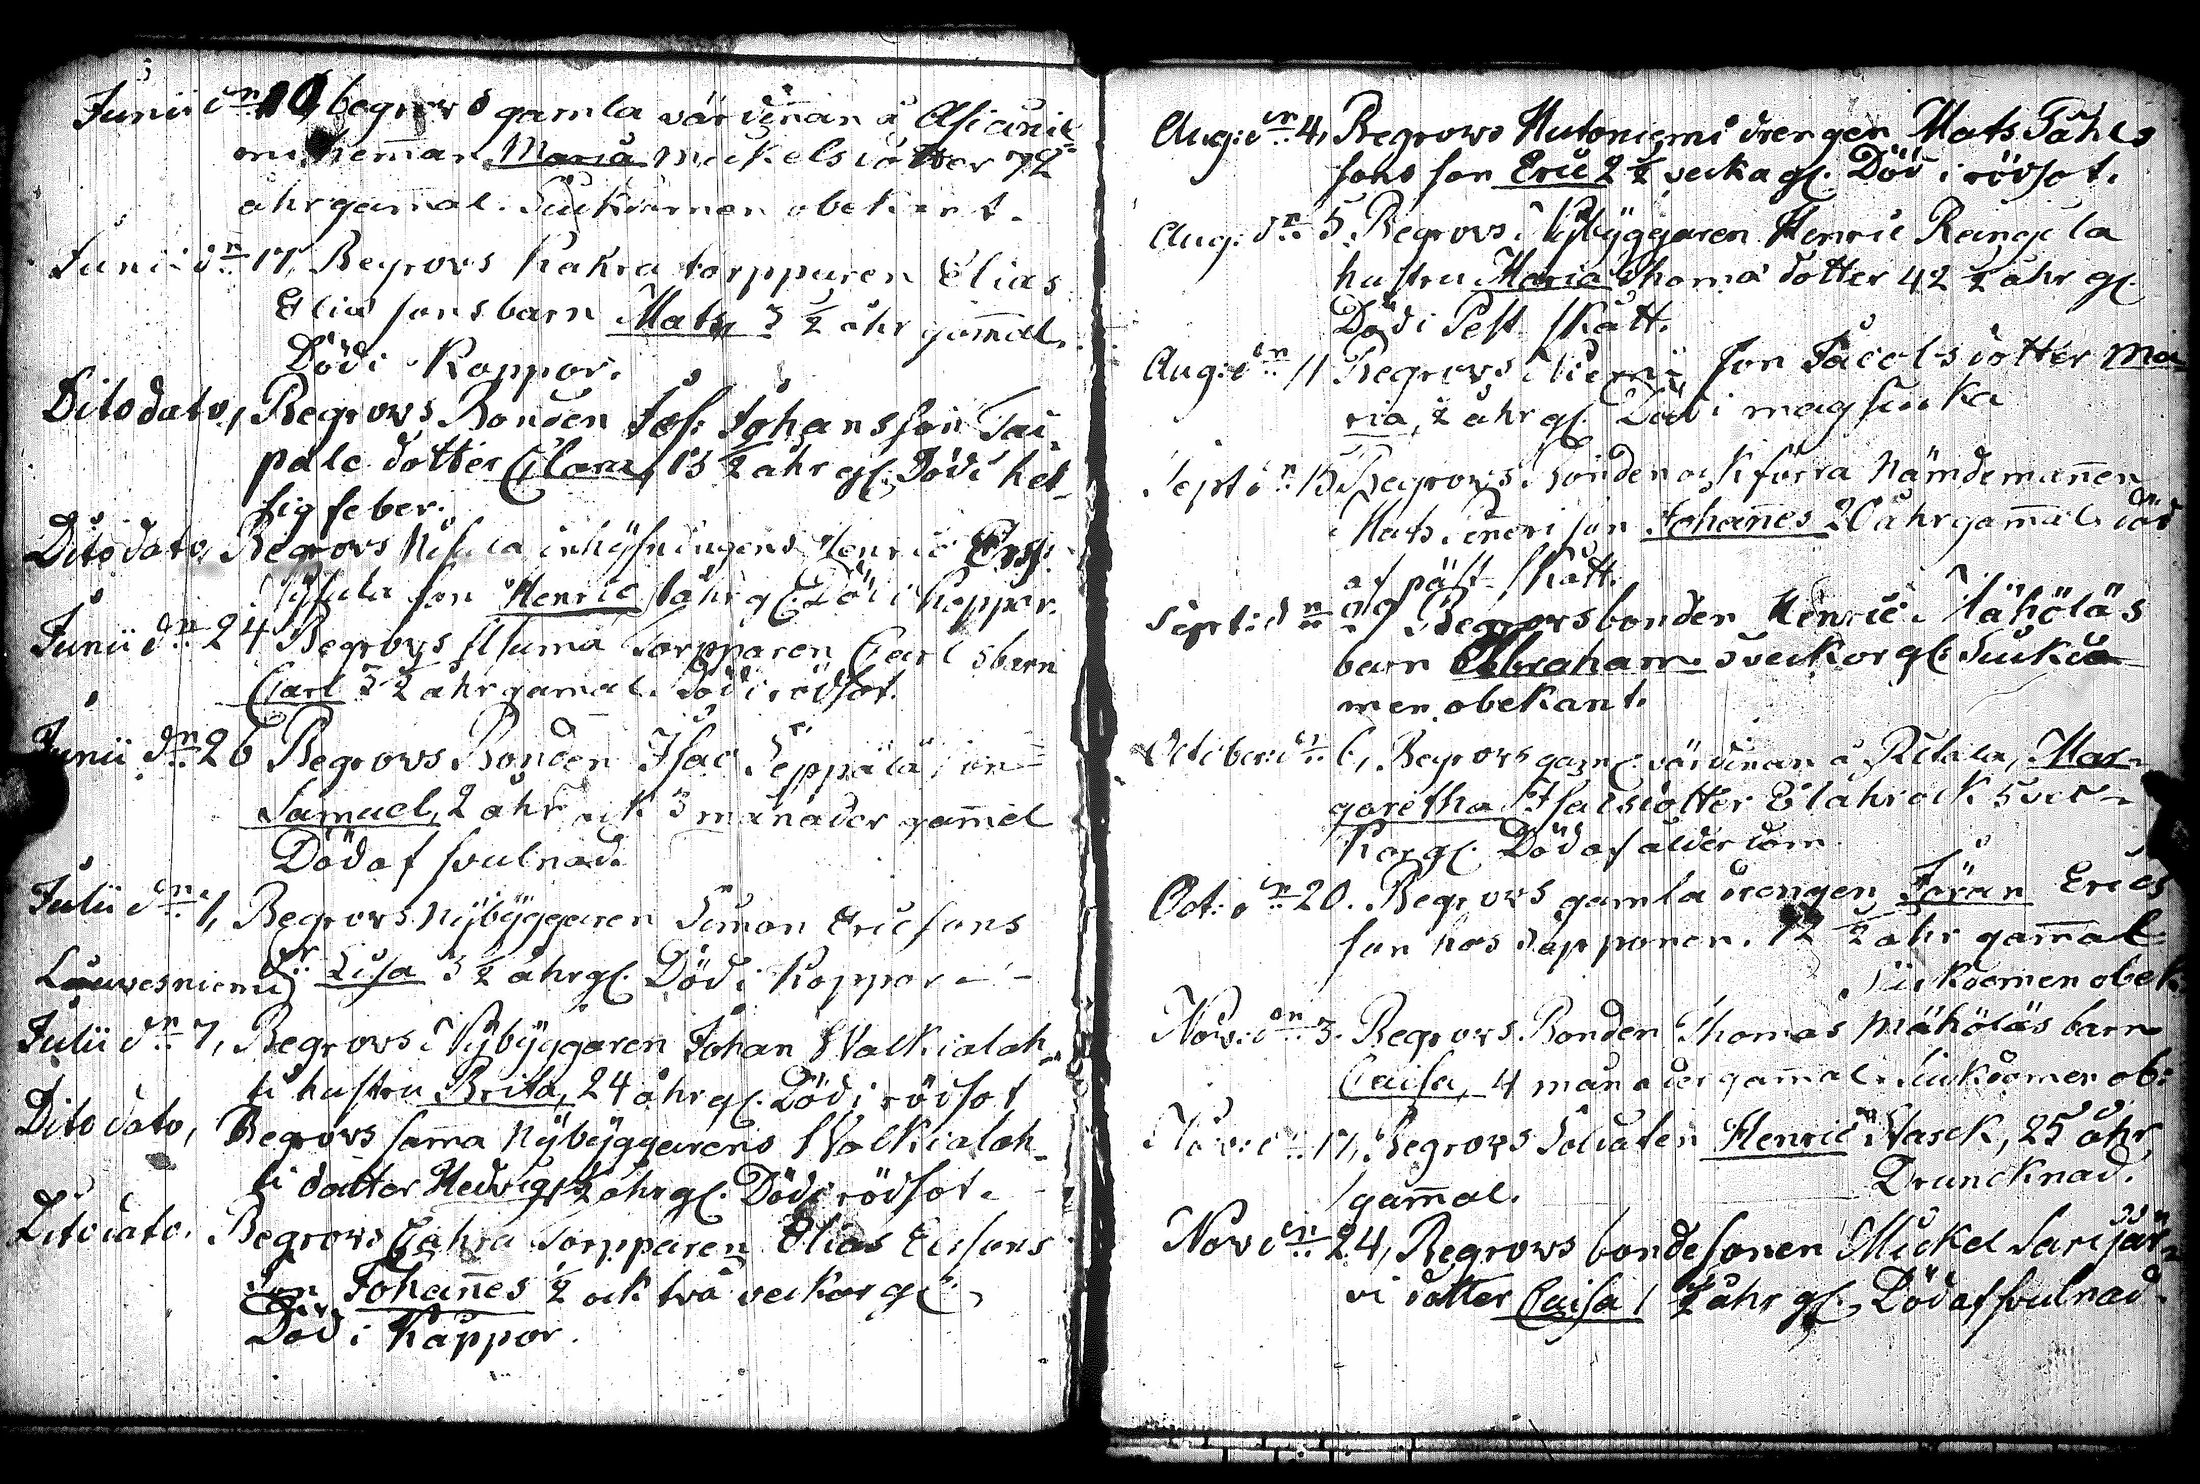 Junii dn 10, begrovs gamla värdinnan å
mi hemman Maria Mickelsdotter 72
åhr gammal. Siukdomen obekant.
Junii dn 17, Begrovs Kakra torpparen Elias
Elias sons barn Mats 3 ½ åhr gam̄al.
Död i Koppor.
Dito dato, Begrovs Bonden Jos: Johansson Tai-
pale dotter Clara, 13 ½ åhr gl. Död i het-
sig feber.
Dito dato, Begrovs inhysingens Henric Ers:
son Henric 1 åhr gl. Död i koppor.
Junii dn 24 Begrovs Torpparen Carls barn
Carl 3 ½ åhr gamal. Död i rödsot.
Junii dn 26 Begrovs Bonden Isac Seppälä son
Samuel, 2 åhr ock 3 månader gam̄al
Död af svulnad.
Julii dn 1, Begrovs Nybyggaren Simon Ericsons
Louvesniemi dr: Lisa 3 ½ åhr gl. Död i Koppor
Julii dn 7, Begrovs Nybyggaren Johan Walkialah-
ti hustru Brita, 24 åhr gl. Död i rödsot
Dito dato, Begrovs sam̄a Nybyggarens Walkialah-
ti dotter Hedvig, ½ åhr gl. Död i rödsot.
Dito dato. Begrovs Torpparen Elias
son Johan̄es ½ ock två veckor gl.
Död i Kåppor.
Aug: dn 4, Begrovs Hutoniemi drengen Mats Påhls
sons son Eric 2 ½ vecka gl. Död i rödsot.
Aug: dn 5. Begrovs Nybyggaren Henric
hustru Maria Thomä dotter 42 ½ åhr gl.
Död i Pest skått.
Aug: dn 11 Begrovs Jon Jacobs dotter Ma-
ria, ½ åhr gl. Död i magsiuka
Sept dn 15 Begrovs Bonden ock förra Nämdeman̄en
Mats son Johan̄es 20 åhr gam̄al. död
af päst skått.
Sept: dn 29 Begrovs bonden Henric Mähöläs
barn Abraham 5 veckor gl. Siukdo-
men obekant.
October: dn 6, Begrovs gaml. värdinnan å Mar-
garetha Isacsdotter 81 åhr ock 5 vec-
kor gl. Död af ålderdom
Oct: dn 20. Begrovs gamla drengen Jöran Erics
son hos Sapponen. 72 ½ åhr gam̄al
Siukdomen obek.
Nov: dn 3. Begrovs Bonden Thomas Mähöläs barn
Caisa, 4 månader gam̄al. Siukdomen ob:
Nov: dn 17, Begrovs Soldaten Henric Wasck, 25 åhr
gam̄al. Druncknad.
Nov dn 24, Begrovs bondesonen Mickel Sarijär-
vi dotter Caisa 1 ½ åhr gl. Död af svulnad.